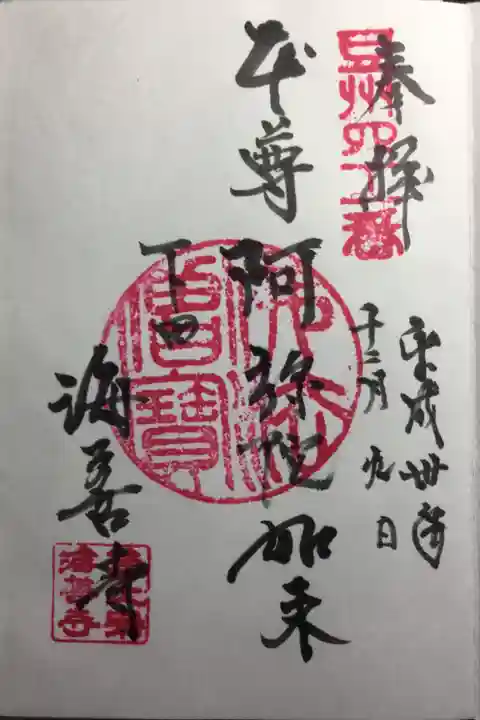 奉拝
平成卅年
十二月九日
本尊 阿弥陀如来
佛法僧寶
下田
海善寺